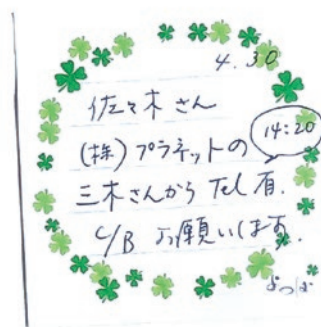 4.30
佐々木さん
(株)プラネットの
14:20
三木さんからTel有.
C/Bお願いします.
よつば